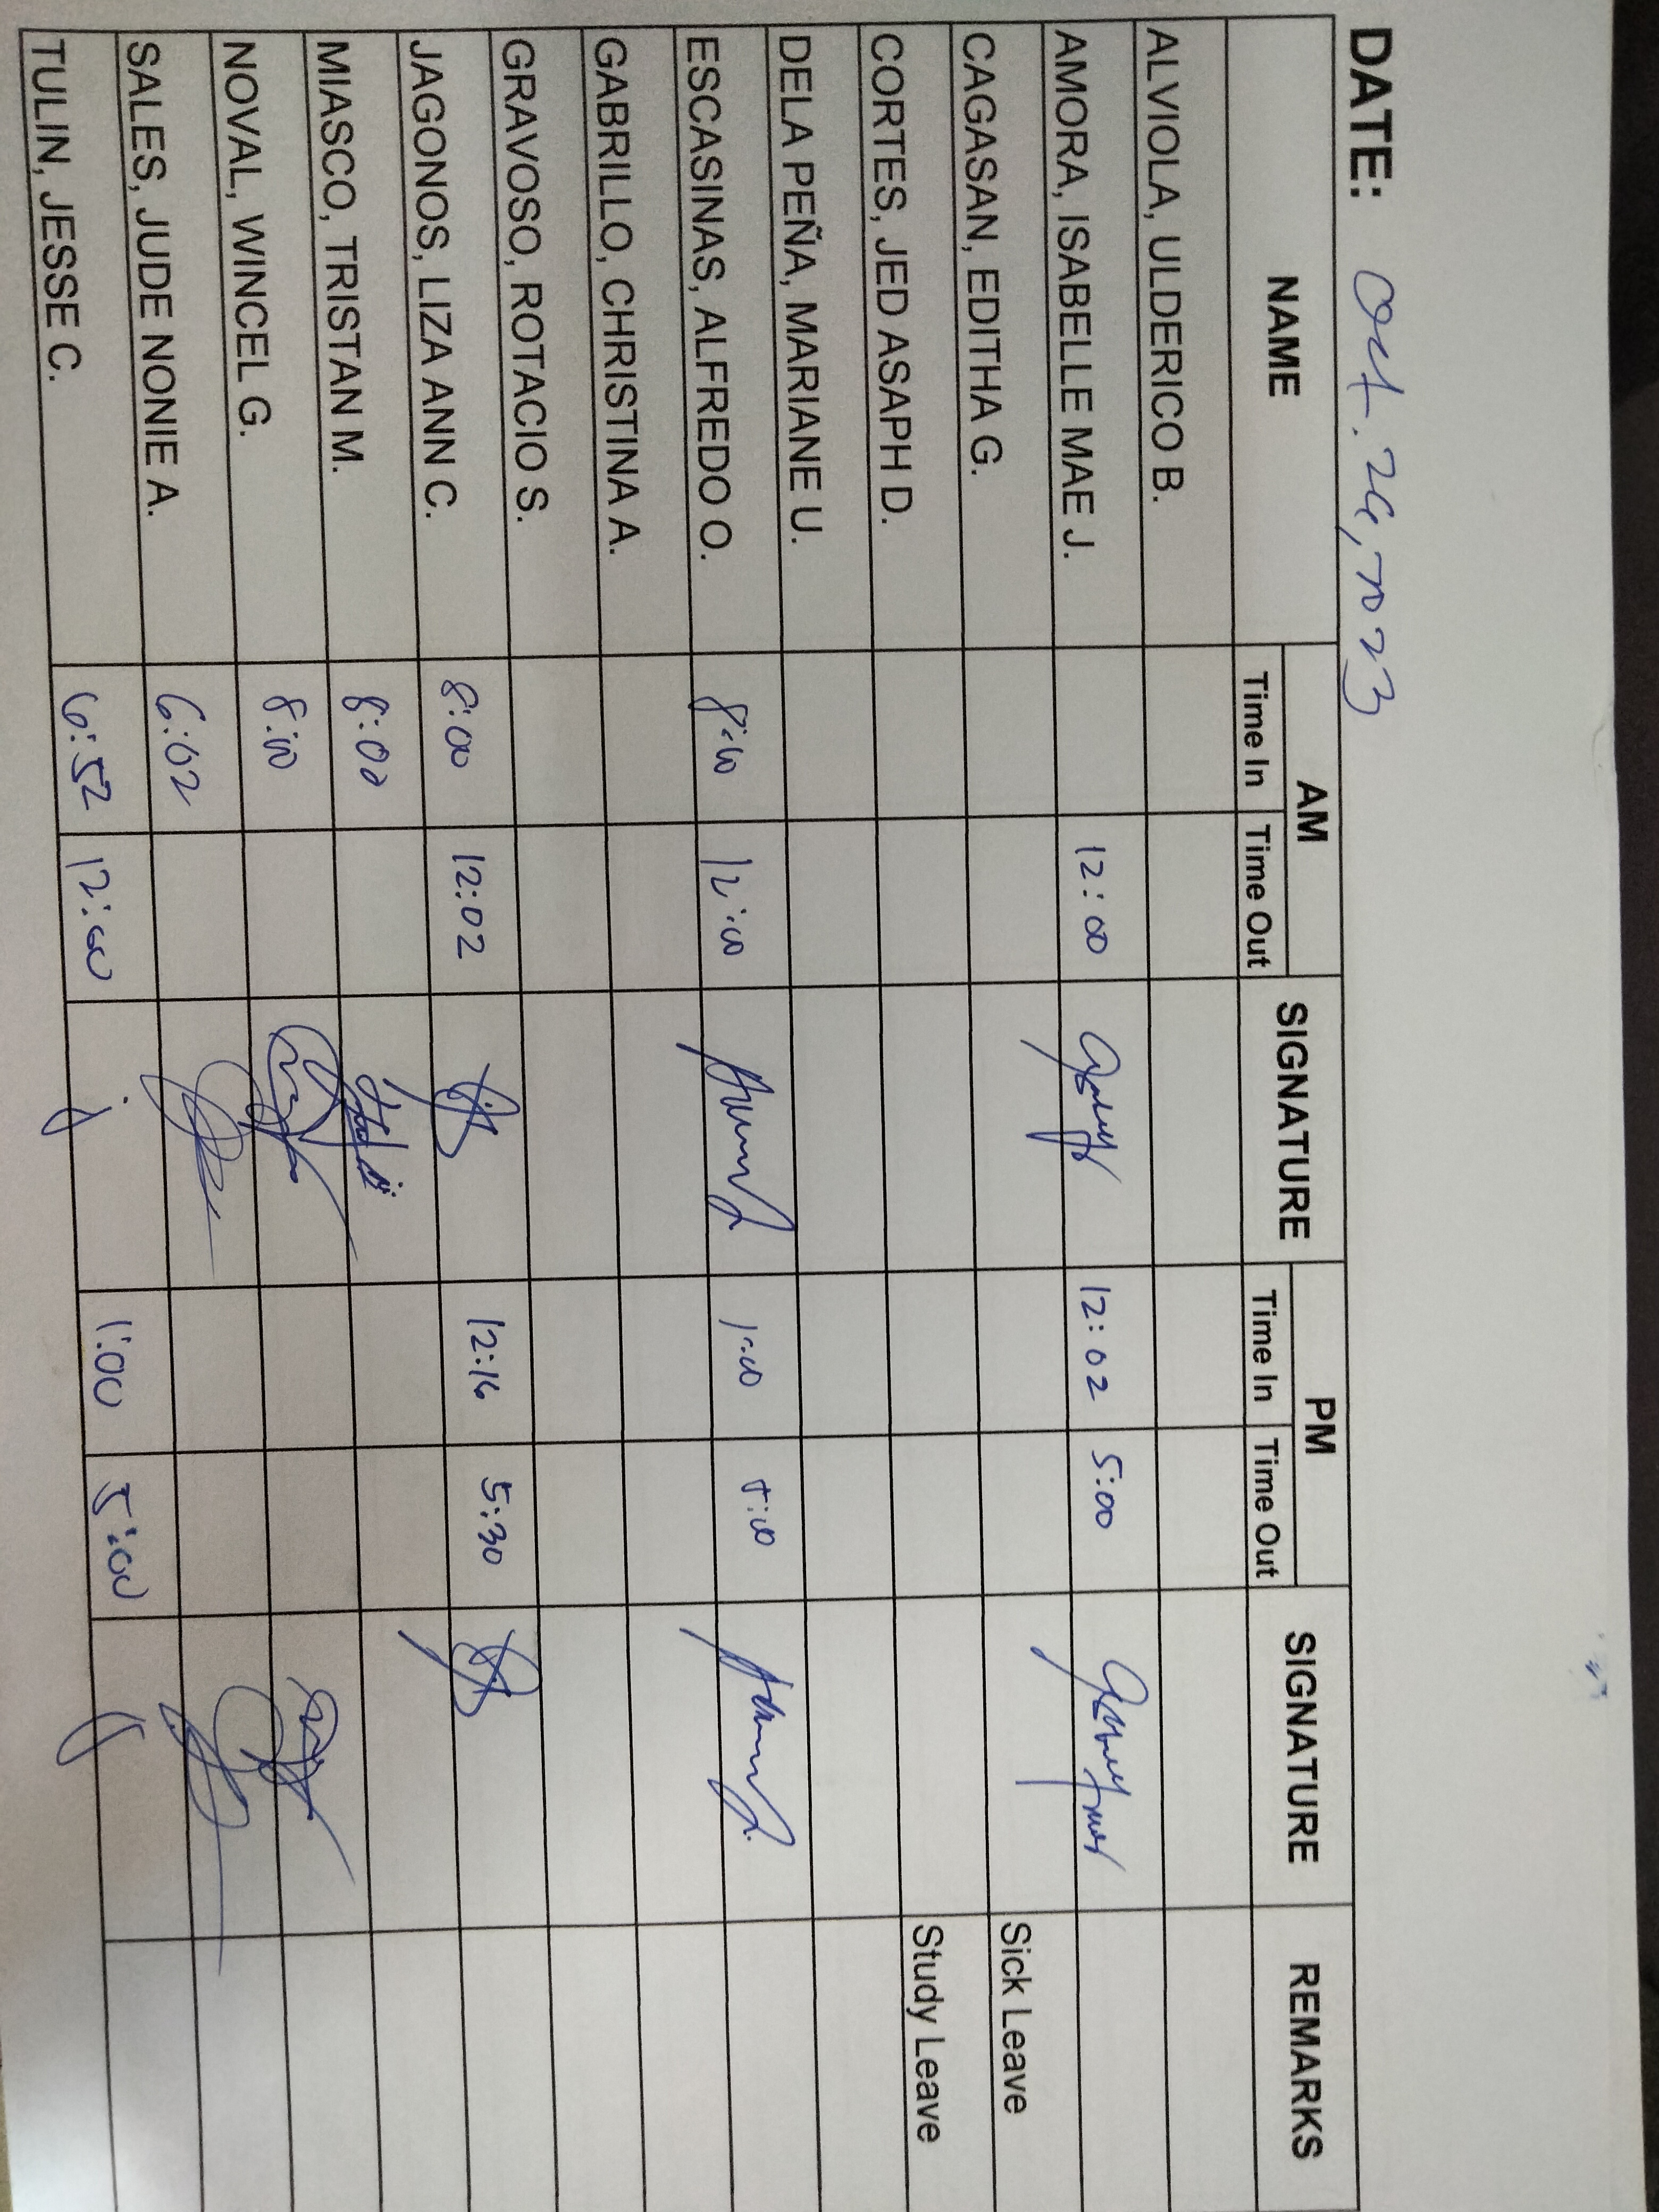 DATE: Oct. 24, 2023
NAME AM SIGNATURE PM SIGNATURE REMARKS
Time In Time Out Time In Time Out
ALVIOLA, ULDERICO B.
AMORA, ISABELLE MAE J. 12:00 12:02 5:00
CAGASAN, EDITHA G. Sick Leave
CORTES, JED ASAPH D. Study Leave
DELA PEÑA, MARIANE U.
ESCASINAS, ALFREDO O. 8:00 12:00 1:00 5:00
GABRILLO, CHRISTINA A.
GRAVOSO, ROTACIO S.
JAGONOS, LIZA ANN C. 8:00 12:02 12:16 5:30
MIASCO, TRISTAN M. 8:00
NOVAL, WINCEL G. 8:00
SALES, JUDE NONIE A. 6:02
TULIN, JESSE C. 6:52 12:00 1:00 5:00